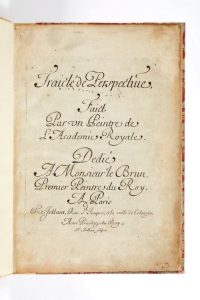 Traicté de Perspective,
Faict
Par un Peintre de
L'Academie Royale.
Dedié
A Monsieur le Brun.
Premier Peintre du Roy.
A Paris
Chez Jollain, Rue St Jacques, a la ville de Cologne.
Avec Privileg du Roy.